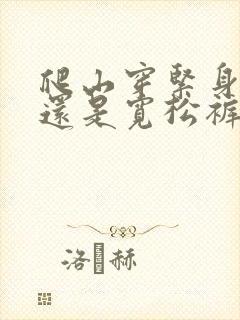 爬山穿緊身
還是寬松褲
洛 赫